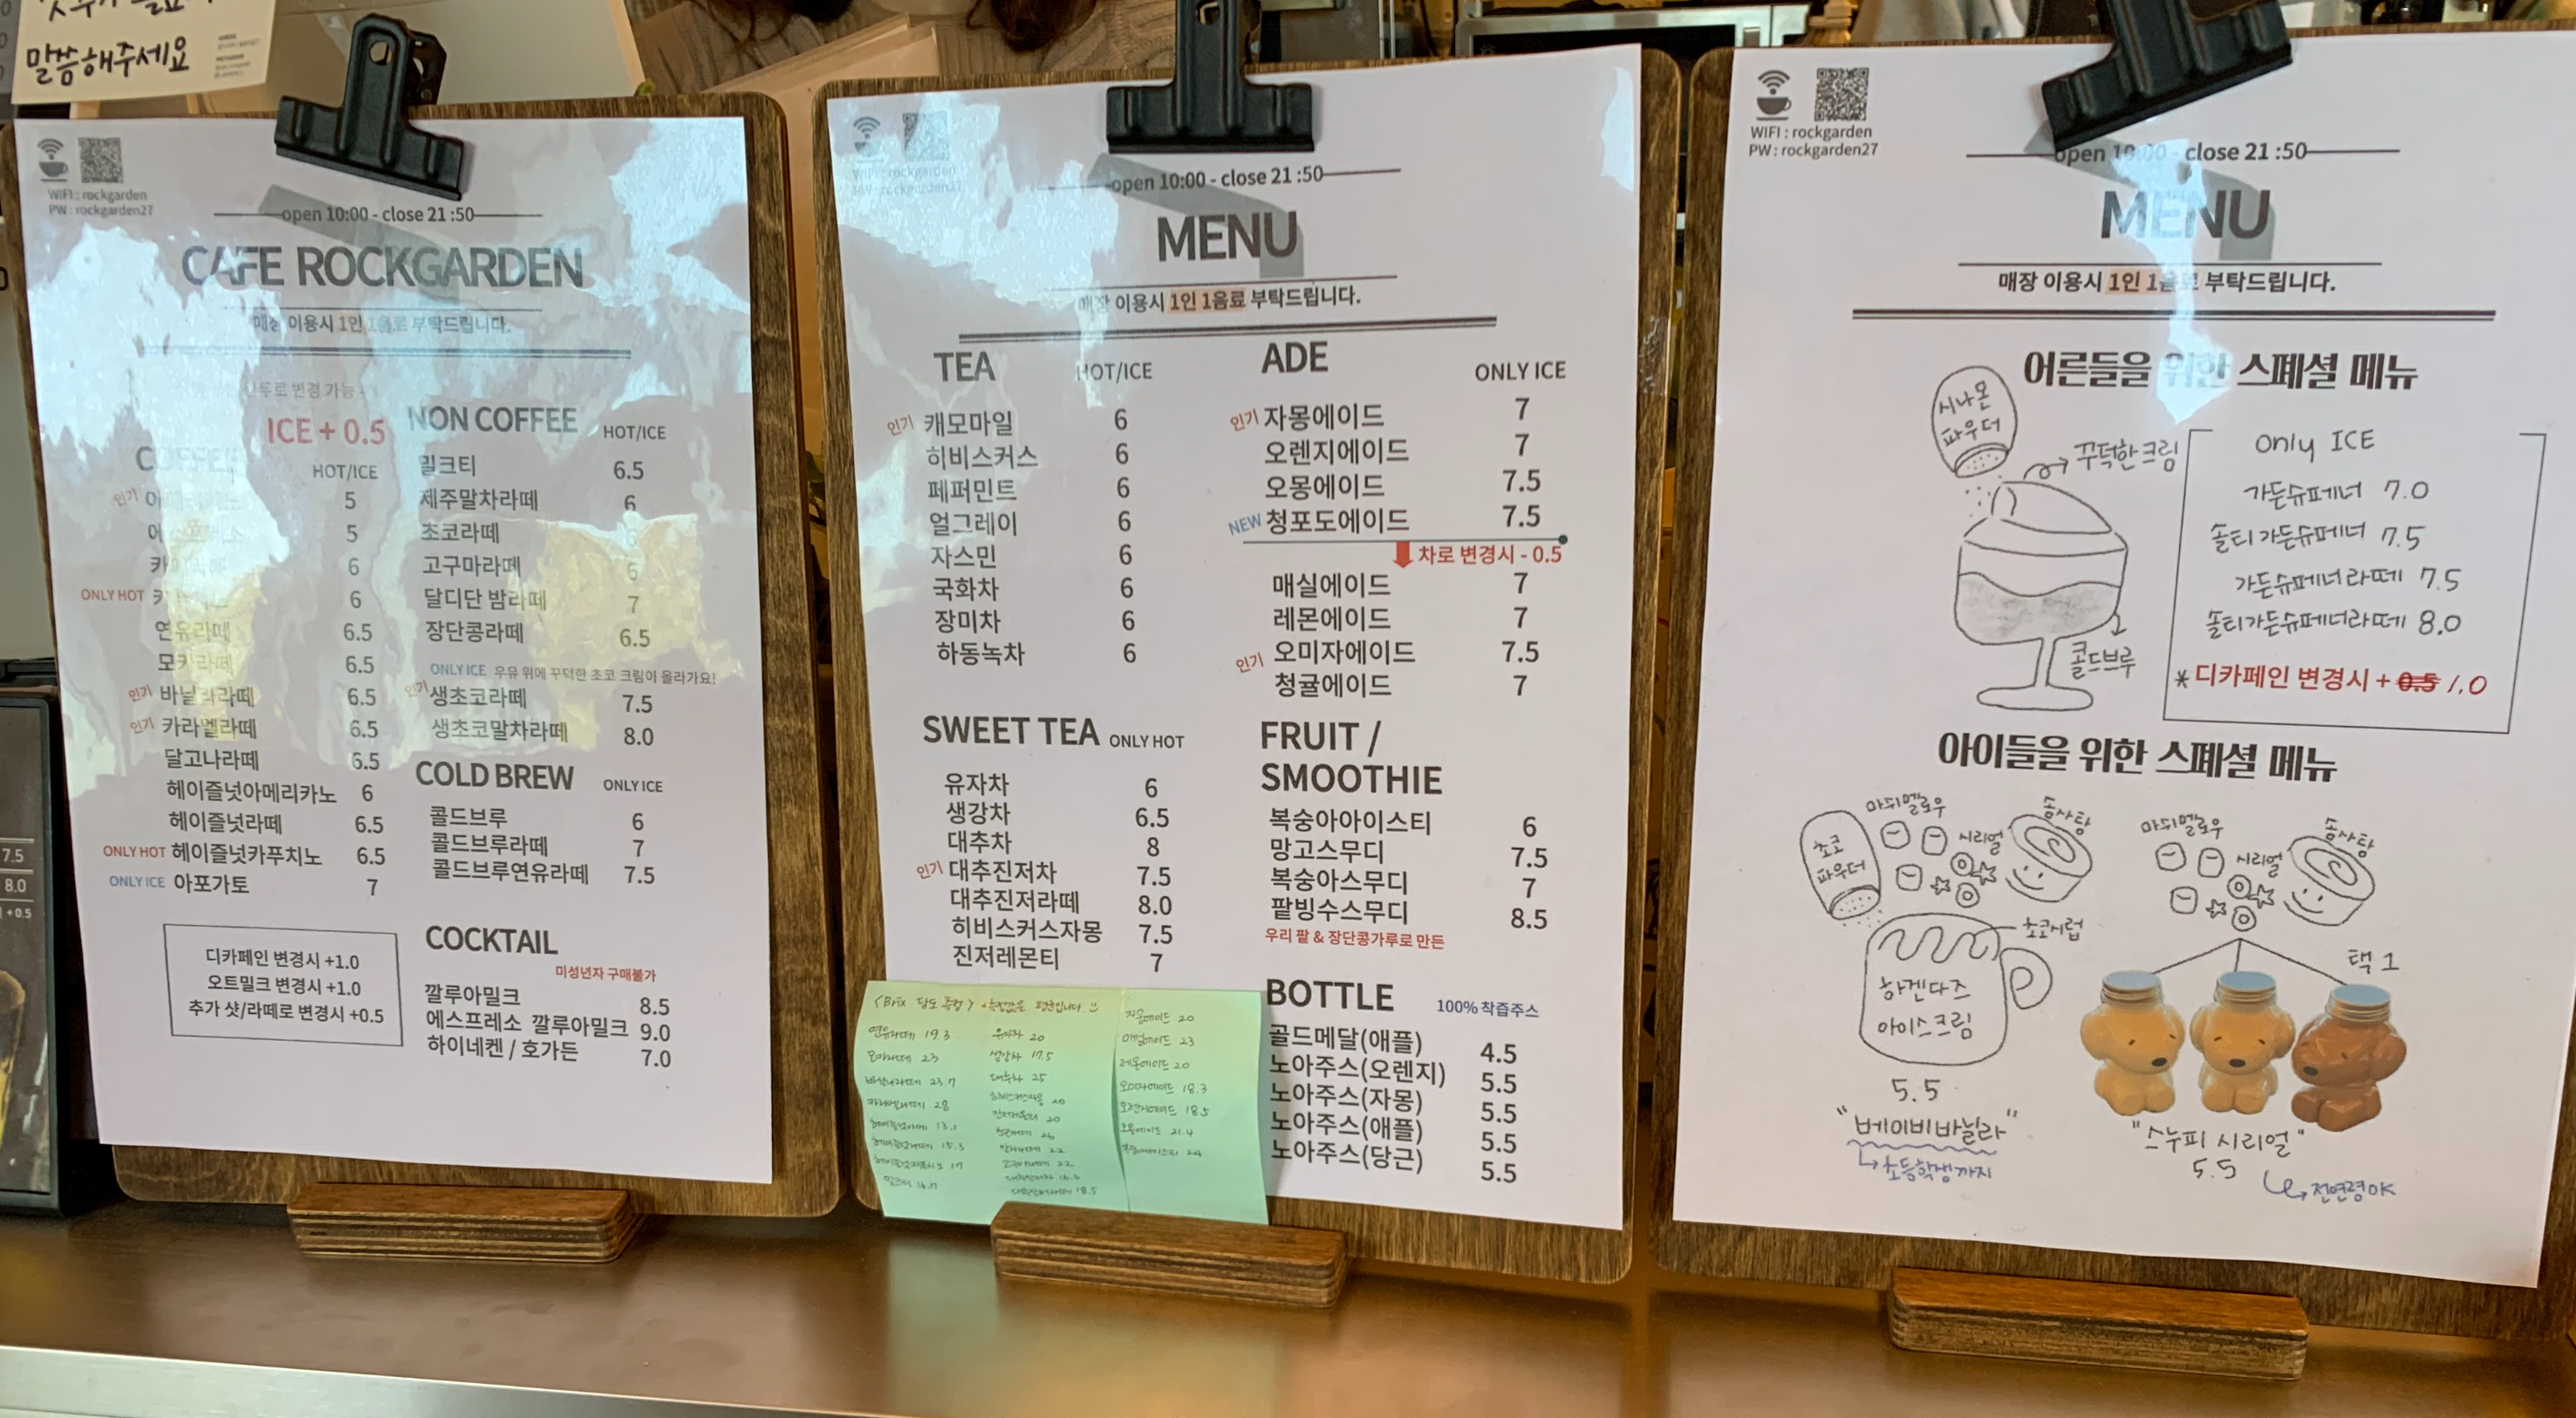 말씀해주세요
WIFI : rockgarden
PW : rockgarden27
open 10:00 - close 21 :50
CAFE ROCKGARDEN
매장 이용시 1인 1음료 부탁드립니다.
변경 가능
ICE + 0.5
COFFEE HOT/ICE
인기 5
5
6
ONLY HOT 6
연유라떼 6.5
모카라떼 6.5
인기 바닐라라떼 6.5
인기 카라멜라떼 6.5
달고나라떼 6.5
헤이즐넛아메리카노 6
헤이즐넛라떼 6.5
ONLY HOT 헤이즐넛카푸치노 6.5
ONLY ICE 아포가토 7
디카페인 변경시 +1.0
오트밀크 변경시 +1.0
추가 샷/라떼로 변경시 +0.5
NON COFFEE HOT/ICE
밀크티 6.5
제주말차라떼 6
초코라떼 6
고구마라떼 6
달디단 밤라떼 7
장단콩라떼 6.5
ONLY ICE 우유 위에 꾸덕한 초코 크림이 올라가요!
인기 생초코라떼 7.5
생초코말차라떼 8.0
COLD BREW ONLY ICE
콜드브루 6
콜드브루라떼 7
콜드브루연유라떼 7.5
COCKTAIL
미성년자 구매불가
깔루아밀크 8.5
에스프레소 깔루아밀크 9.0
하이네켄 / 호가든 7.0
WIFI : rockgarden
PW : rockgarden27
open 10:00 - close 21 :50
MENU
매장 이용시 1인 1음료 부탁드립니다.
TEA HOT/ICE
인기 캐모마일 6
히비스커스 6
페퍼민트 6
얼그레이 6
자스민 6
국화차 6
장미차 6
하동녹차 6
SWEET TEA ONLY HOT
유자차 6
생강차 6.5
대추차 8
인기 대추진저차 7.5
대추진저라떼 8.0
히비스커스자몽 7.5
진저레몬티 7
ADE ONLY ICE
인기 자몽에이드 7
오렌지에이드 7
오몽에이드 7.5
NEW 청포도에이드 7.5
차로 변경시 - 0.5
매실에이드 7
레몬에이드 7
인기 오미자에이드 7.5
청귤에이드 7
FRUIT /
SMOOTHIE
복숭아아이스티 6
망고스무디 7.5
복숭아스무디 7
팥빙수스무디 8.5
우리 팥 & 장단콩가루로 만든
BOTTLE 100% 착즙주스
골드메달(애플) 4.5
노아주스(오렌지) 5.5
노아주스(자몽) 5.5
노아주스(애플) 5.5
노아주스(당근) 5.5
<Brix 당도 측정> 측정값은 평균입니다
연유라떼 19.3
모카라떼 23
바닐라라떼 23.7
카라멜라떼 28
13.1
15.3
17
밀크티 16.7
유자차 20
생강차 17.5
대추차 25
히비스커스자몽 20
진저레몬티 20
초코라떼 26
22
22
16.3
18.5
자몽에이드 20
매실에이드 23
레몬에이드 20
오미자에이드 18.3
오렌지에이드 18.5
오몽에이드 21.4
24
WIFI : rockgarden
PW : rockgarden27
open 10:00 - close 21 :50
MENU
매장 이용시 1인 1음료 부탁드립니다.
어른들을 위한 스페셜 메뉴
시나몬
파우더
꾸덕한크림
콜드브루
Only ICE
가든슈페너 7.0
솔티가든슈페너 7.5
가든슈페너라떼 7.5
솔티가든슈페너라떼 8.0
* 디카페인 변경시 + 0.5 1.0
아이들을 위한 스페셜 메뉴
초코
파우더
마쉬멜로우
시리얼
솜사탕
초코시럽
하겐다즈
아이스크림
5.5
"베이비바닐라"
초등학생까지
마쉬멜로우
시리얼
솜사탕
택 1
"스누피 시리얼"
5.5
전연령OK
7.5
8.0
+0.5